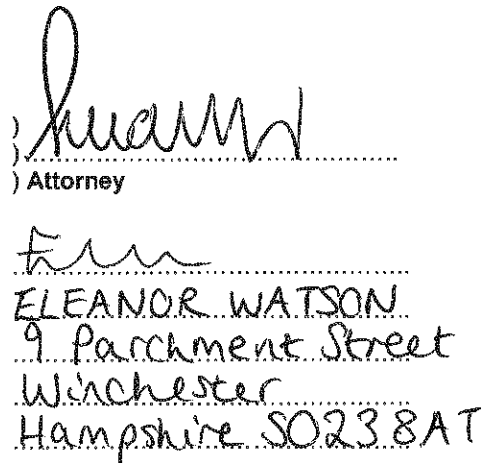 )
)
) Attorney
ELEANOR WATSON
9 Parchment Street
Winchester
Hampshire SO23 8AT